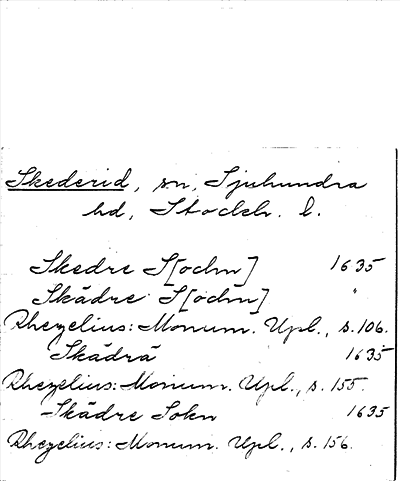 Skederid, sn, Sjuhundra
hd, Stockh. l.
Skedre S[ochn] 1635
Skädre S[ochn] "
Rhezelius: Monum. Upl., s. 106.
Skädrä 1635
Rhezelius: Monum. Upl., s. 155.
Skädre Sokn 1635
Rhezelius: Monum. Upl., s. 156.